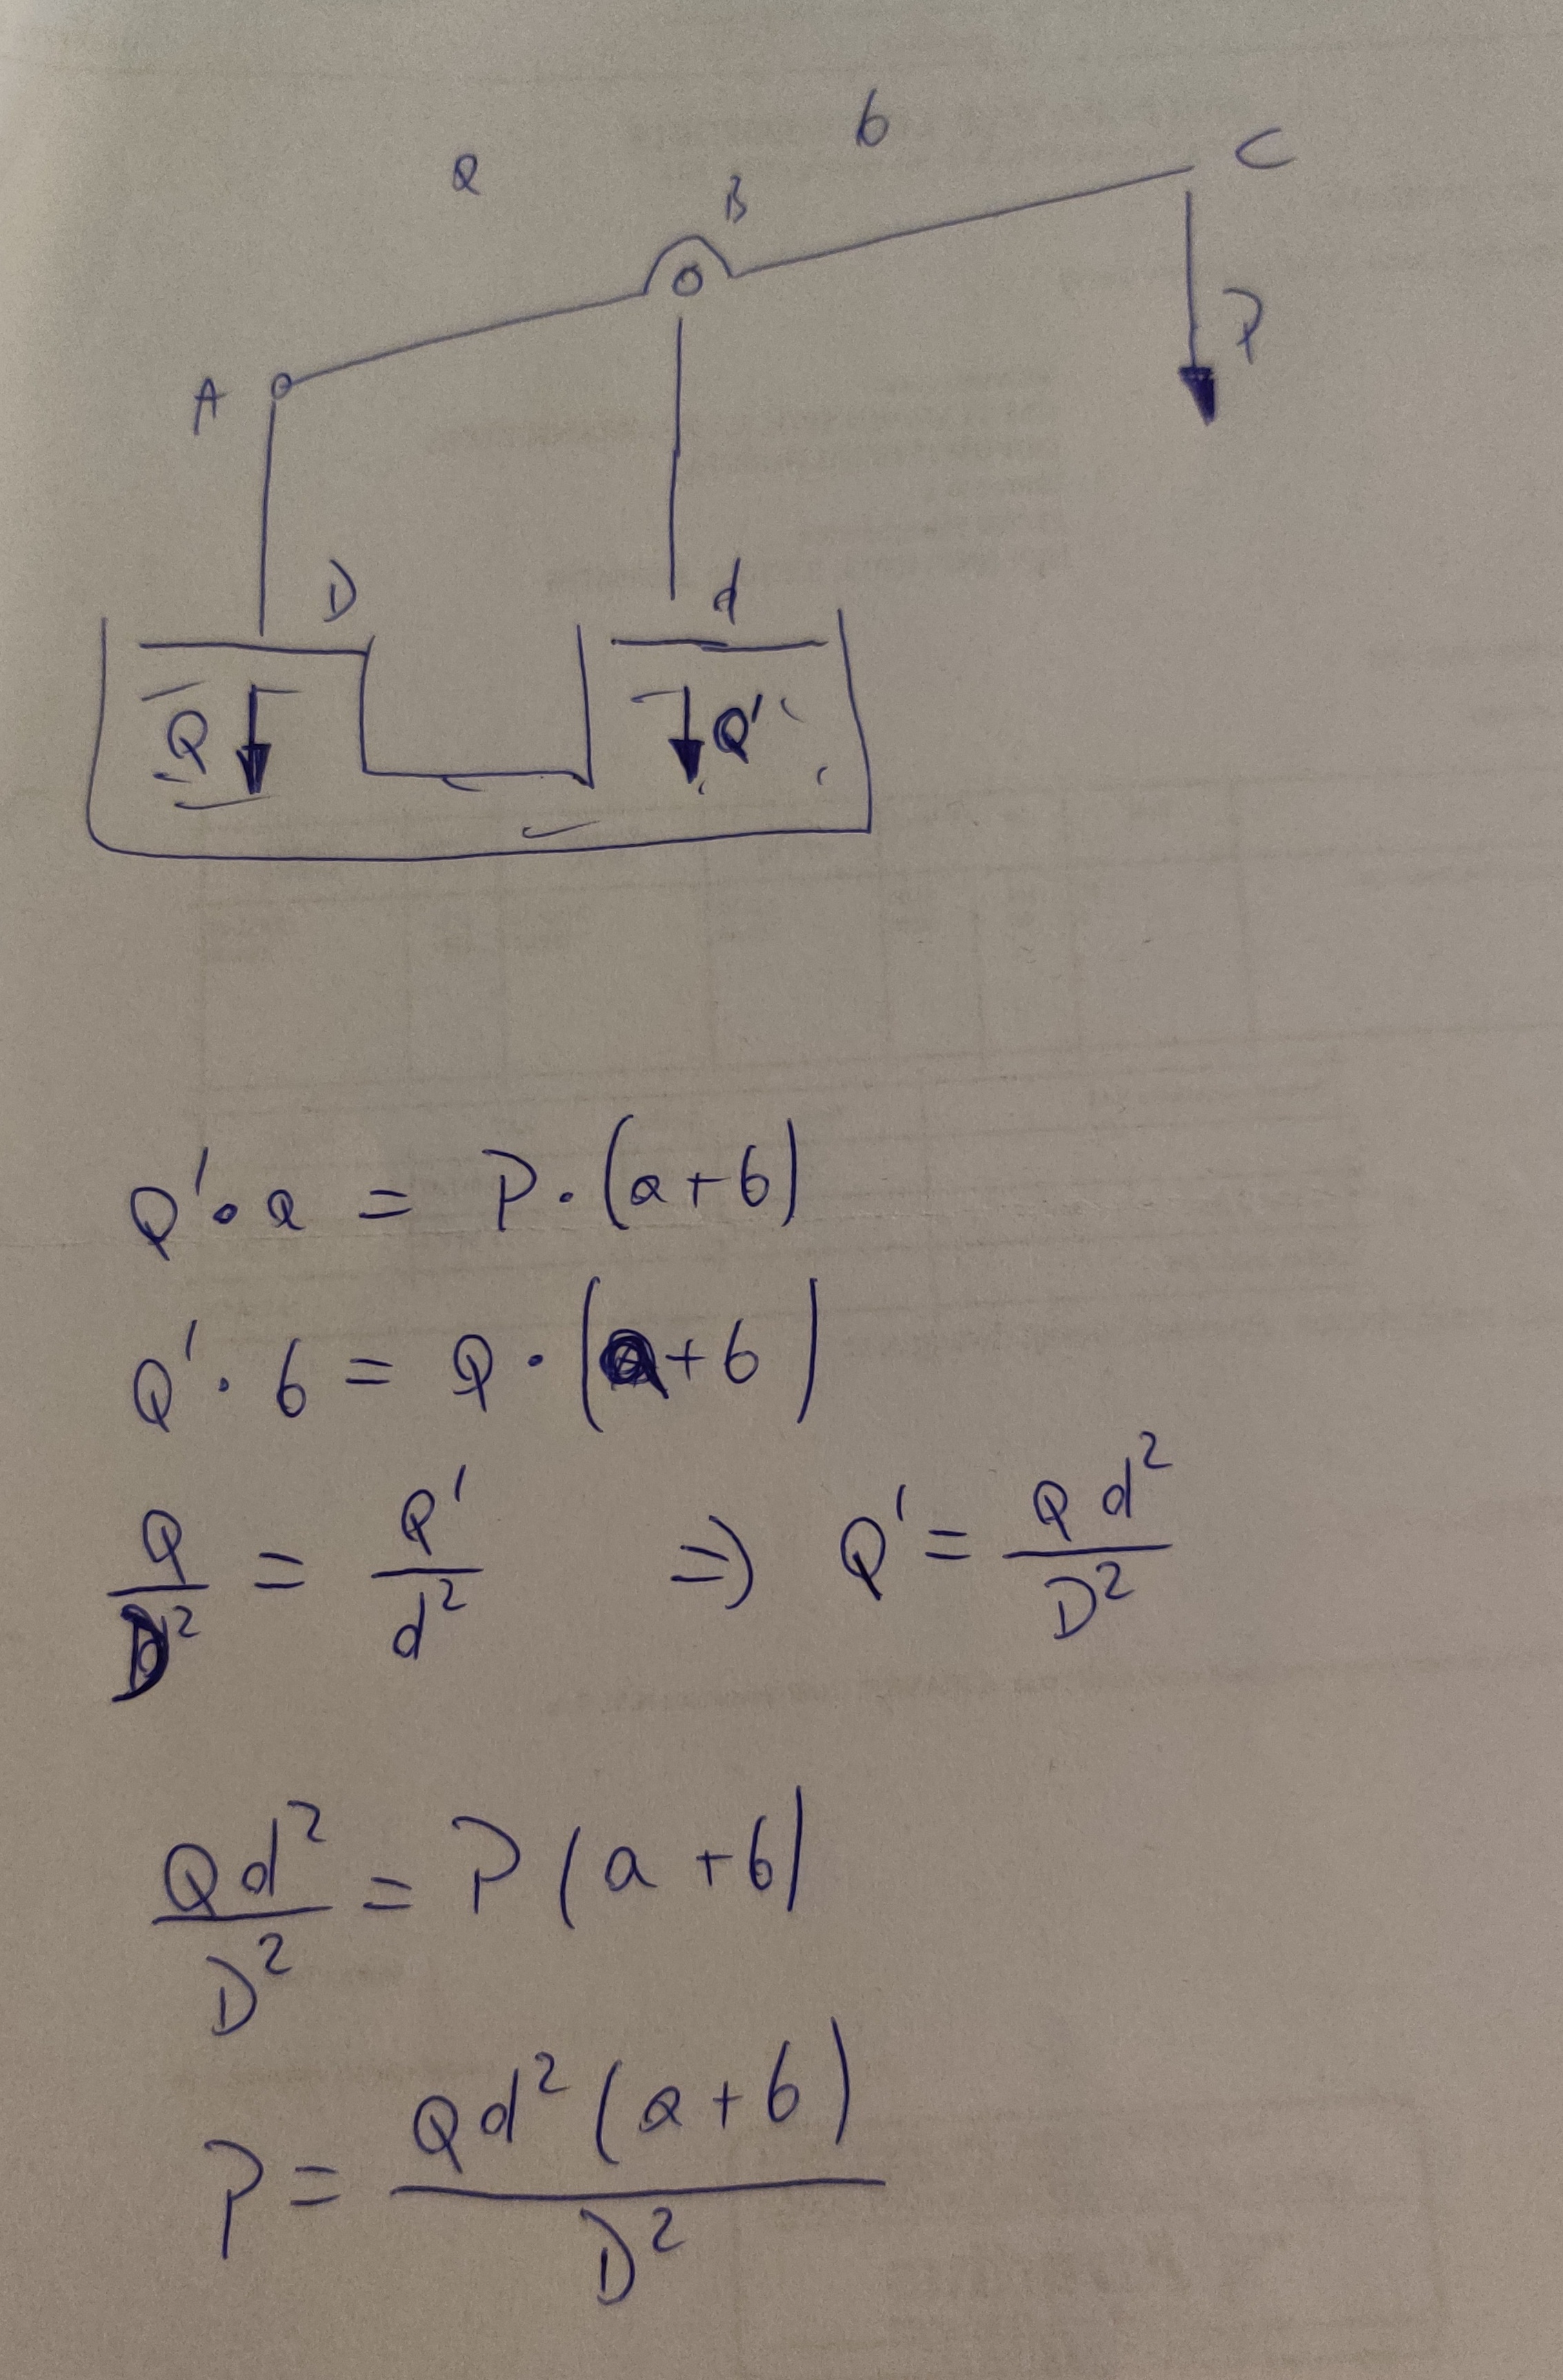 a b
B C
A P
D d
Q Q'
Q' · a = P · (a+b)
Q' · b = Q · (a+b)
Q/D² = Q'/d² => Q' = Q d²/D²
Qd²/D² = P (a+b)
P = Qd² (a+b)/D²